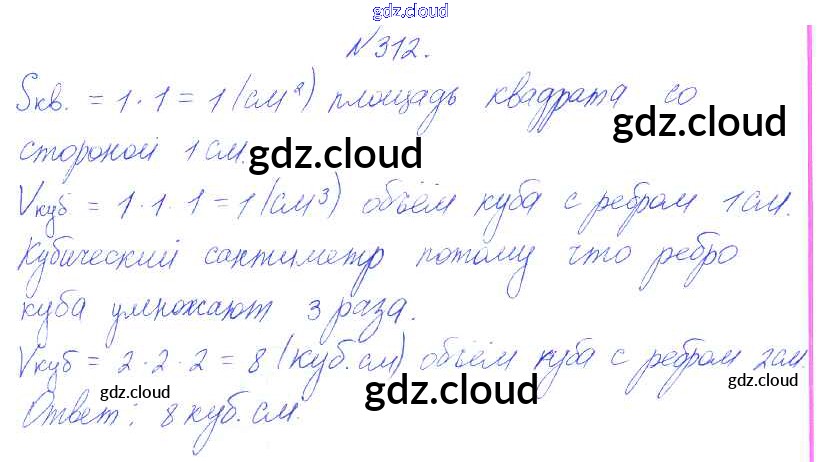 gdz.cloud
N 312.
Sкв. = 1 · 1 = 1 (см²) площадь квадрата со
gdz.cloud
стороной 1 см.
gdz.cloud
Vкуб = 1 · 1 · 1 = 1 (см³) объём куба с ребром 1 см.
Кубический сантиметр потому что ребро
куба умножают 3 раза.
Vкуб = 2 · 2 · 2 = 8 (куб. см) объём куба с ребром 2 см.
gdz.cloud gdz.cloud gdz.cloud
Ответ: 8 куб. см.